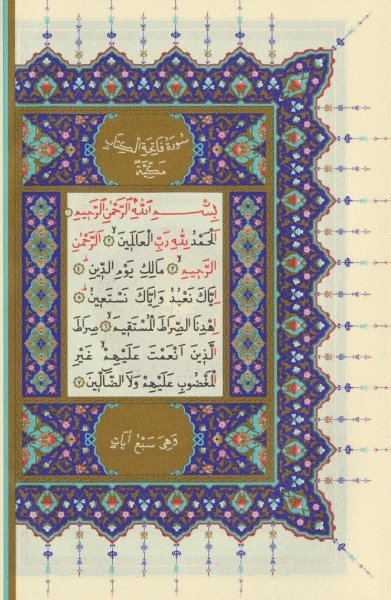 سُورَةُ فَاتِحَةِ الْكِتَابِ
مَكِّيَّةٌ
بِسْــمِ اللّٰهِ الرَّحْمٰنِ الرَّحِيمِ
اَلْحَمْدُ لِلّٰهِ رَبِّ الْعَالَمِينَ ۙ الرَّحْمٰنِ
الرَّحِيمِ ۙ مَالِكِ يَوْمِ الدِّينِ ۜ
اِيَّاكَ نَعْبُدُ وَاِيَّاكَ نَسْتَعِينُ ۜ
اِهْدِنَا الصِّرَاطَ الْمُسْتَقِيمَ ۙ صِرَاطَ
الَّذِينَ اَنْعَمْتَ عَلَيْهِمْ ۙ غَيْرِ
الْمَغْضُوبِ عَلَيْهِمْ وَلَا الضَّٓالِّينَ
وَهِيَ سَبْعُ اٰيَاتٍ